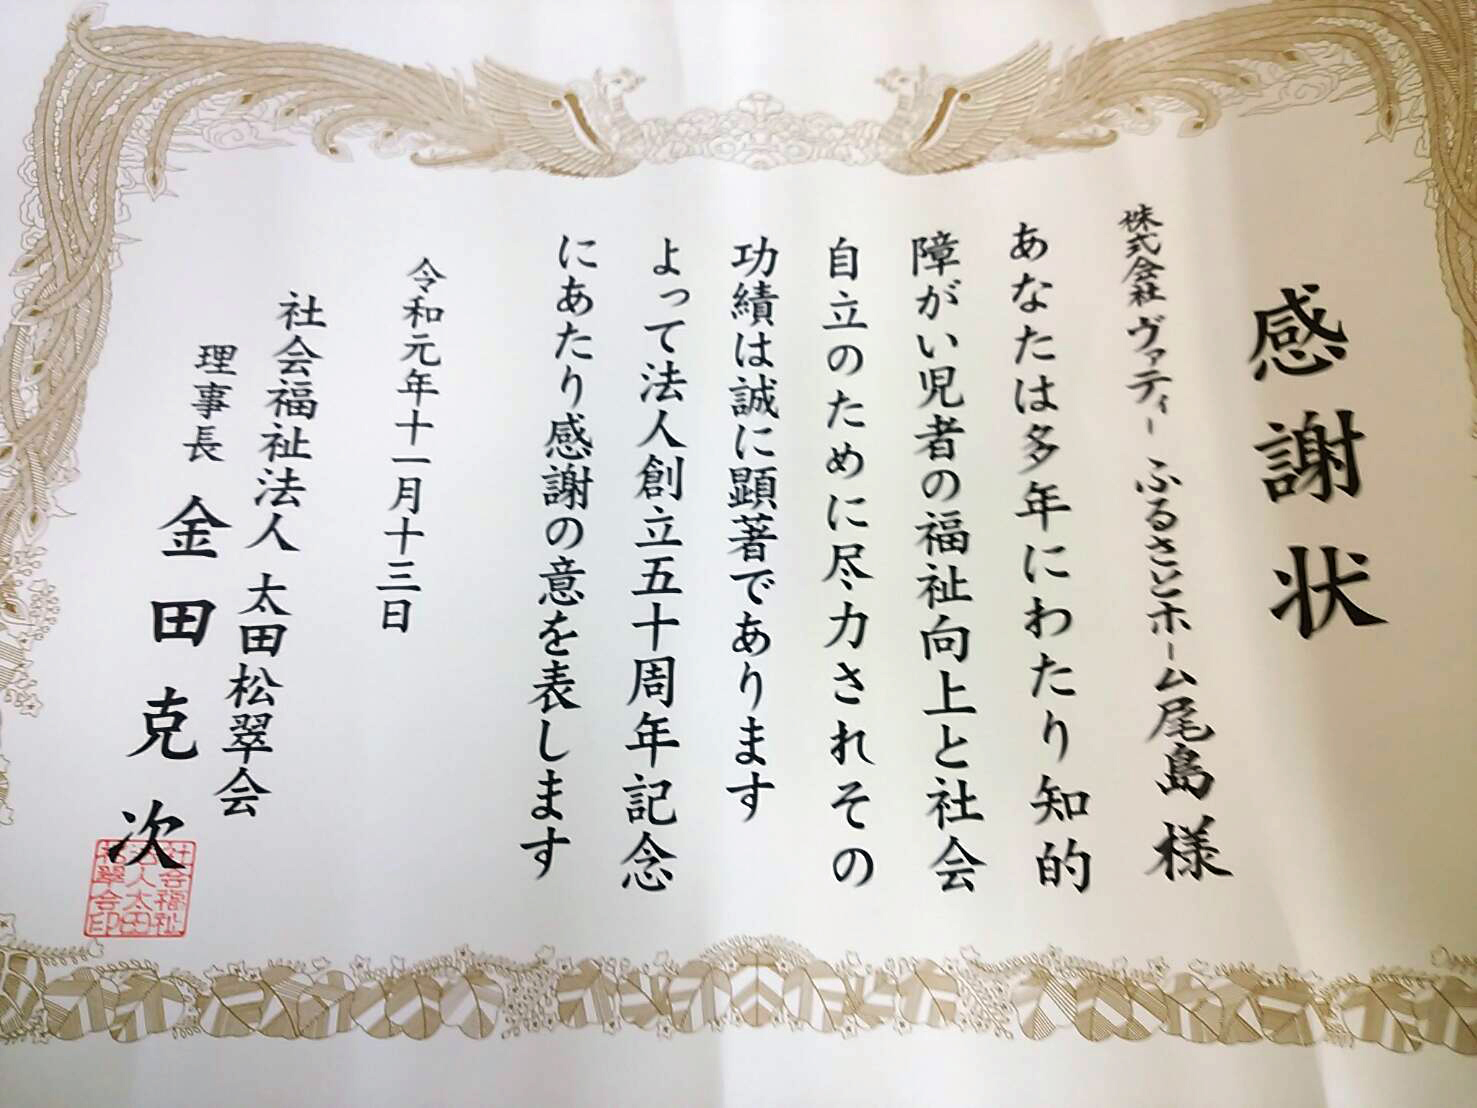 感謝状
株式会社ヴァティー ふるさとホーム尾島様
あなたは多年にわたり知的
障がい児者の福祉向上と社会
自立のために尽力されその
功績は誠に顕著であります
よって法人創立五十周年記念
にあたり感謝の意を表します
令和元年十一月十三日
社会福祉法人 太田松翠会
理事長 金田克次
社会福祉
法人太田
松翠会印